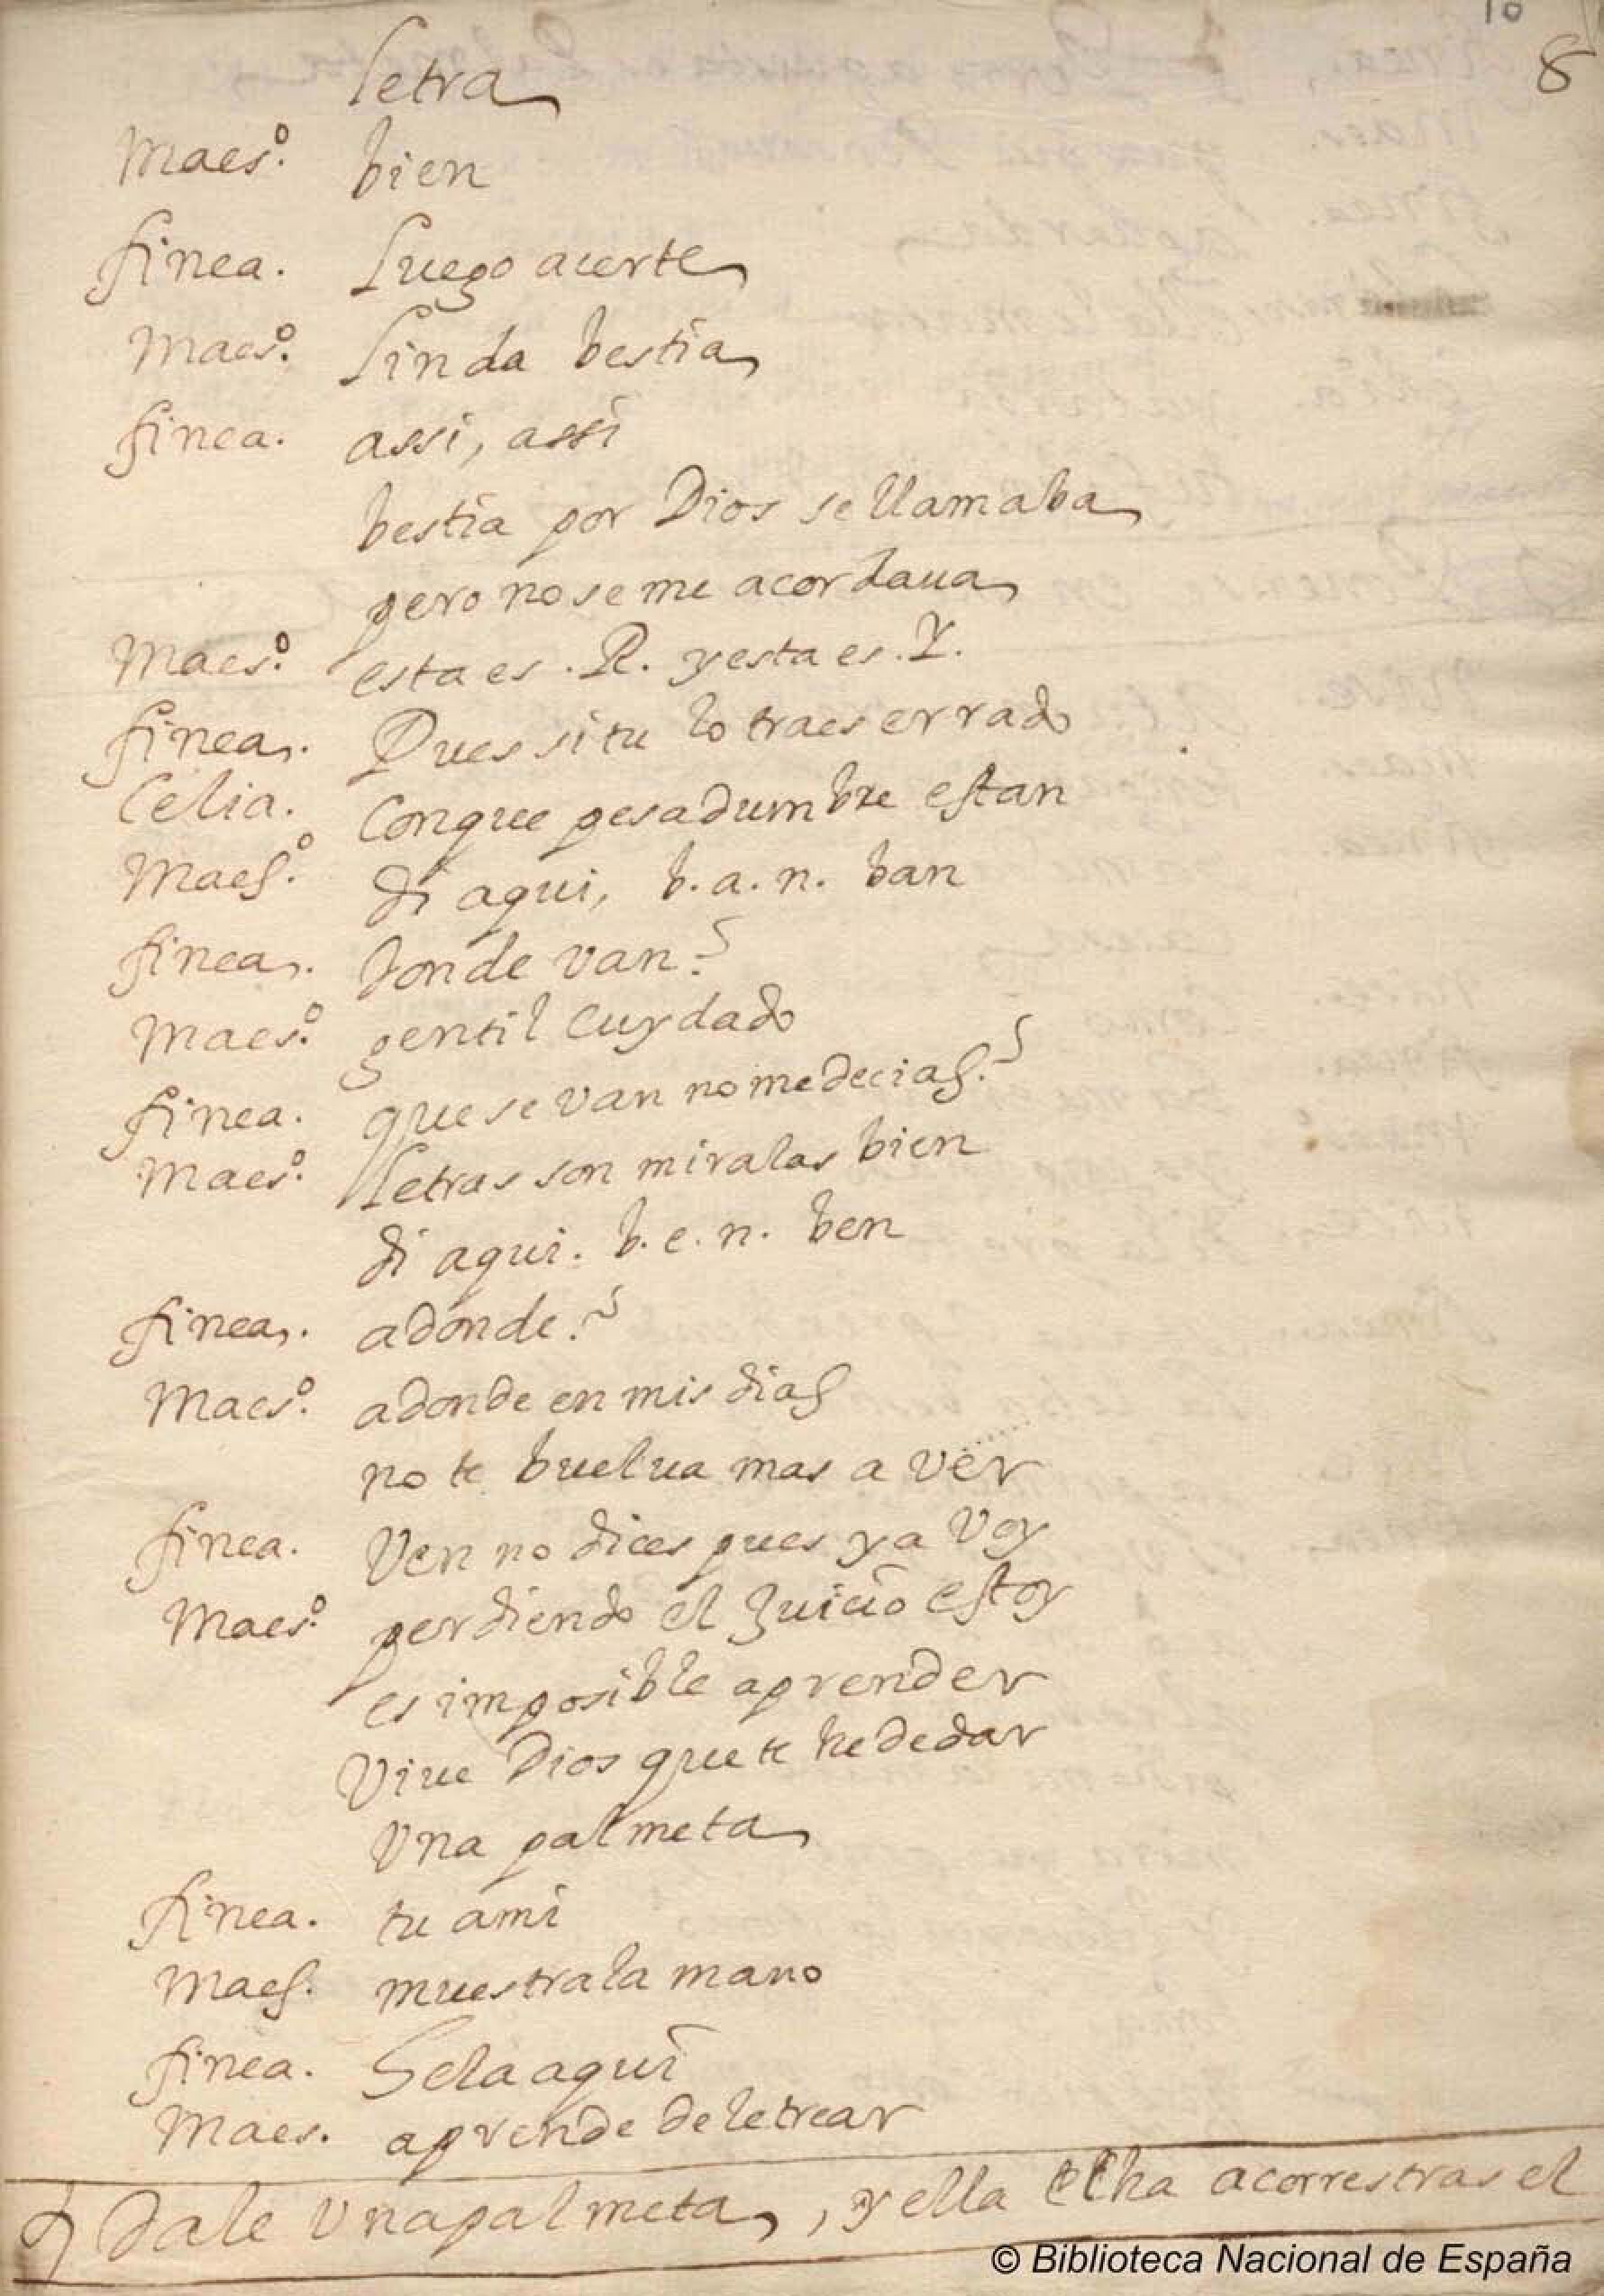 10
8
letra
Maesº. bien
finea. Luego acerte
Maesº. Linda bestia
finea. assi, assi
bestia por Dios se llamaba
pero no se me acordaua
Maesº. esta es .R. y esta es .Y.
finea. Pues si tu lo traes errado
Celia. Conque pesadumbre estan
Maesº. di aqui, b.a.n. ban
finea. donde van?
Maesº. gentil cuydado
finea. que se van no me decias?
Maesº. Letras son miralas bien
di aqui. b.e.n. ben
finea. adonde?
Maesº. adonde en mis dias
no te buelua mas a ver
finea. Ven no dices pues ya Voy
Maesº. perdiendo el Juicio estoy
es imposible aprender
Viue Dios que te he de dar
Vna palmeta
finea. tu ami
Maes. muestra la mano
finea. Hela aqui
Maes. aprende deletrear
Dale Vna palmeta, y ella echa a correr tras el
© Biblioteca Nacional de España